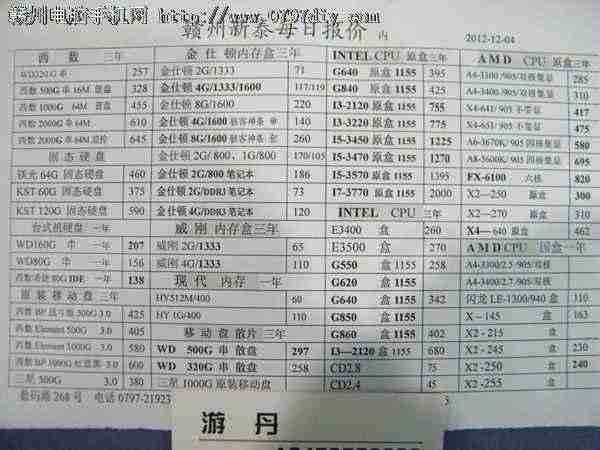 赣州电脑手机网 www.0797diy.com
赣州新泰每日报价 内 2012-12-04
西数 三年 金仕顿内存盒三年 INTEL CPU 原盒三年 AMD CPU 原盒三年
WD320G 串 257 金仕顿 2G/1333 71 G640 原盒 1155 395 285
西数 500G 串 16M 蓝盘 328 金仕顿 4G/1333/1600 117/119 G840 原盒 1155 425 310
西数 1000G 64M 蓝盘 455 金仕顿 8G/1600 220 I3-2120 原盒 1155 755 417
西数 2000G 串 64M 610 金仕顿 4G/1600 骇客神条 单 140 I3-3220 原盒 1155 775 475
西数 2000G 串 64M 645 金仕顿 8G/1600 骇客神条 套 260 I5-3450 原盒 1155 1225 A6-3670K/ 905 四核集显 580
固态硬盘 金仕顿 2G/ 800、1G/800 170/105 I5-3470 原盒 1155 1270 A8-5600K/ 905 四核集显 695
镁光 64G 固态硬盘 460 金仕顿 2G/800 笔记本 186 I5-3570 原盒 1155 1395 FX-6100 六核 820
KST 60G 固态硬盘 375 金仕顿 2G/DDR3 笔记本 73 I7-3770 原盒 1155 2000 X2—250 原盒 300
KST 120G 固态硬盘 590 金仕顿 4G/DDR3 笔记本 120 INTEL CPU 三年 X2—270 原盒 310
台式机硬盘 一年 威刚内存盒三年 E3400 盒 260 X4—640 原盒 462
WD160G 串 一年 207 威刚 2G/1333 65 E3500 盒 270 AMD CPU 国盒一年
WD80G 串 一年 156 威刚 4G/1333 110 G550 盒 1155 258 A4-3300/2.5 /905/双核
西数希捷 80G IDE 一年 138 现代 内存 一年 G620 盒 1155 A4-3400/2.7 /905/双核
原装移动盘 三年 HY512M/400 60 G640 盒 1155 342 闪龙 LE-1300/940 盒 110
500G 3.0 425 HY 1G/400 110 G850 盒 1155 X—145 盒 163
西数 Element 500G 3.0 405 移动盘散片 三年 G860 盒 1155 402 X2 -215 盒
西数 Element 1000G 3.0 580 WD 500G 串 散盘 297 I3—2120 盒 1155 680 X2 -245 盒 230
西数 BP 1000G 3.0 600 WD 320G 串 散盘 258 CD2.8 75 X2 -250 盒 240
三星 500G 3.0 380 三星 1000G 原装移动盘 CD2.4 45 X2 -255 盒
数码路 268 号 电话 0797-21923
游 丹